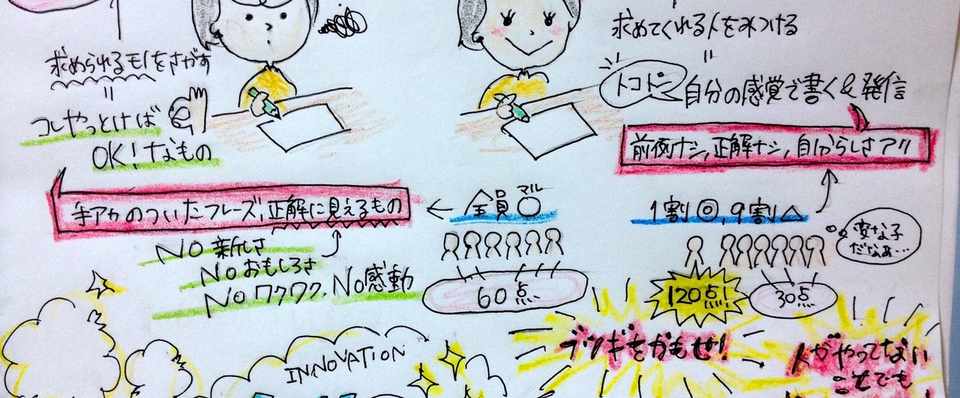 求められるモノをさがす
=
コレやっとけば
OK!なもの
手アカのついたフレーズ,正解に見えるもの
NO 新しさ
No おもしろさ
No ワクワク, No感動
← 全員〇
マル
60点
INNOVATION
求めてくれる人をみつける
=
トコトン
自分の感覚で書く&発信
前例ナシ,正解ナシ,自分らしさアリ
1割◎,9割△
変な子
だなぁ…
120点!
30点
ブツギをかもせ!
人がやってない
ことでも